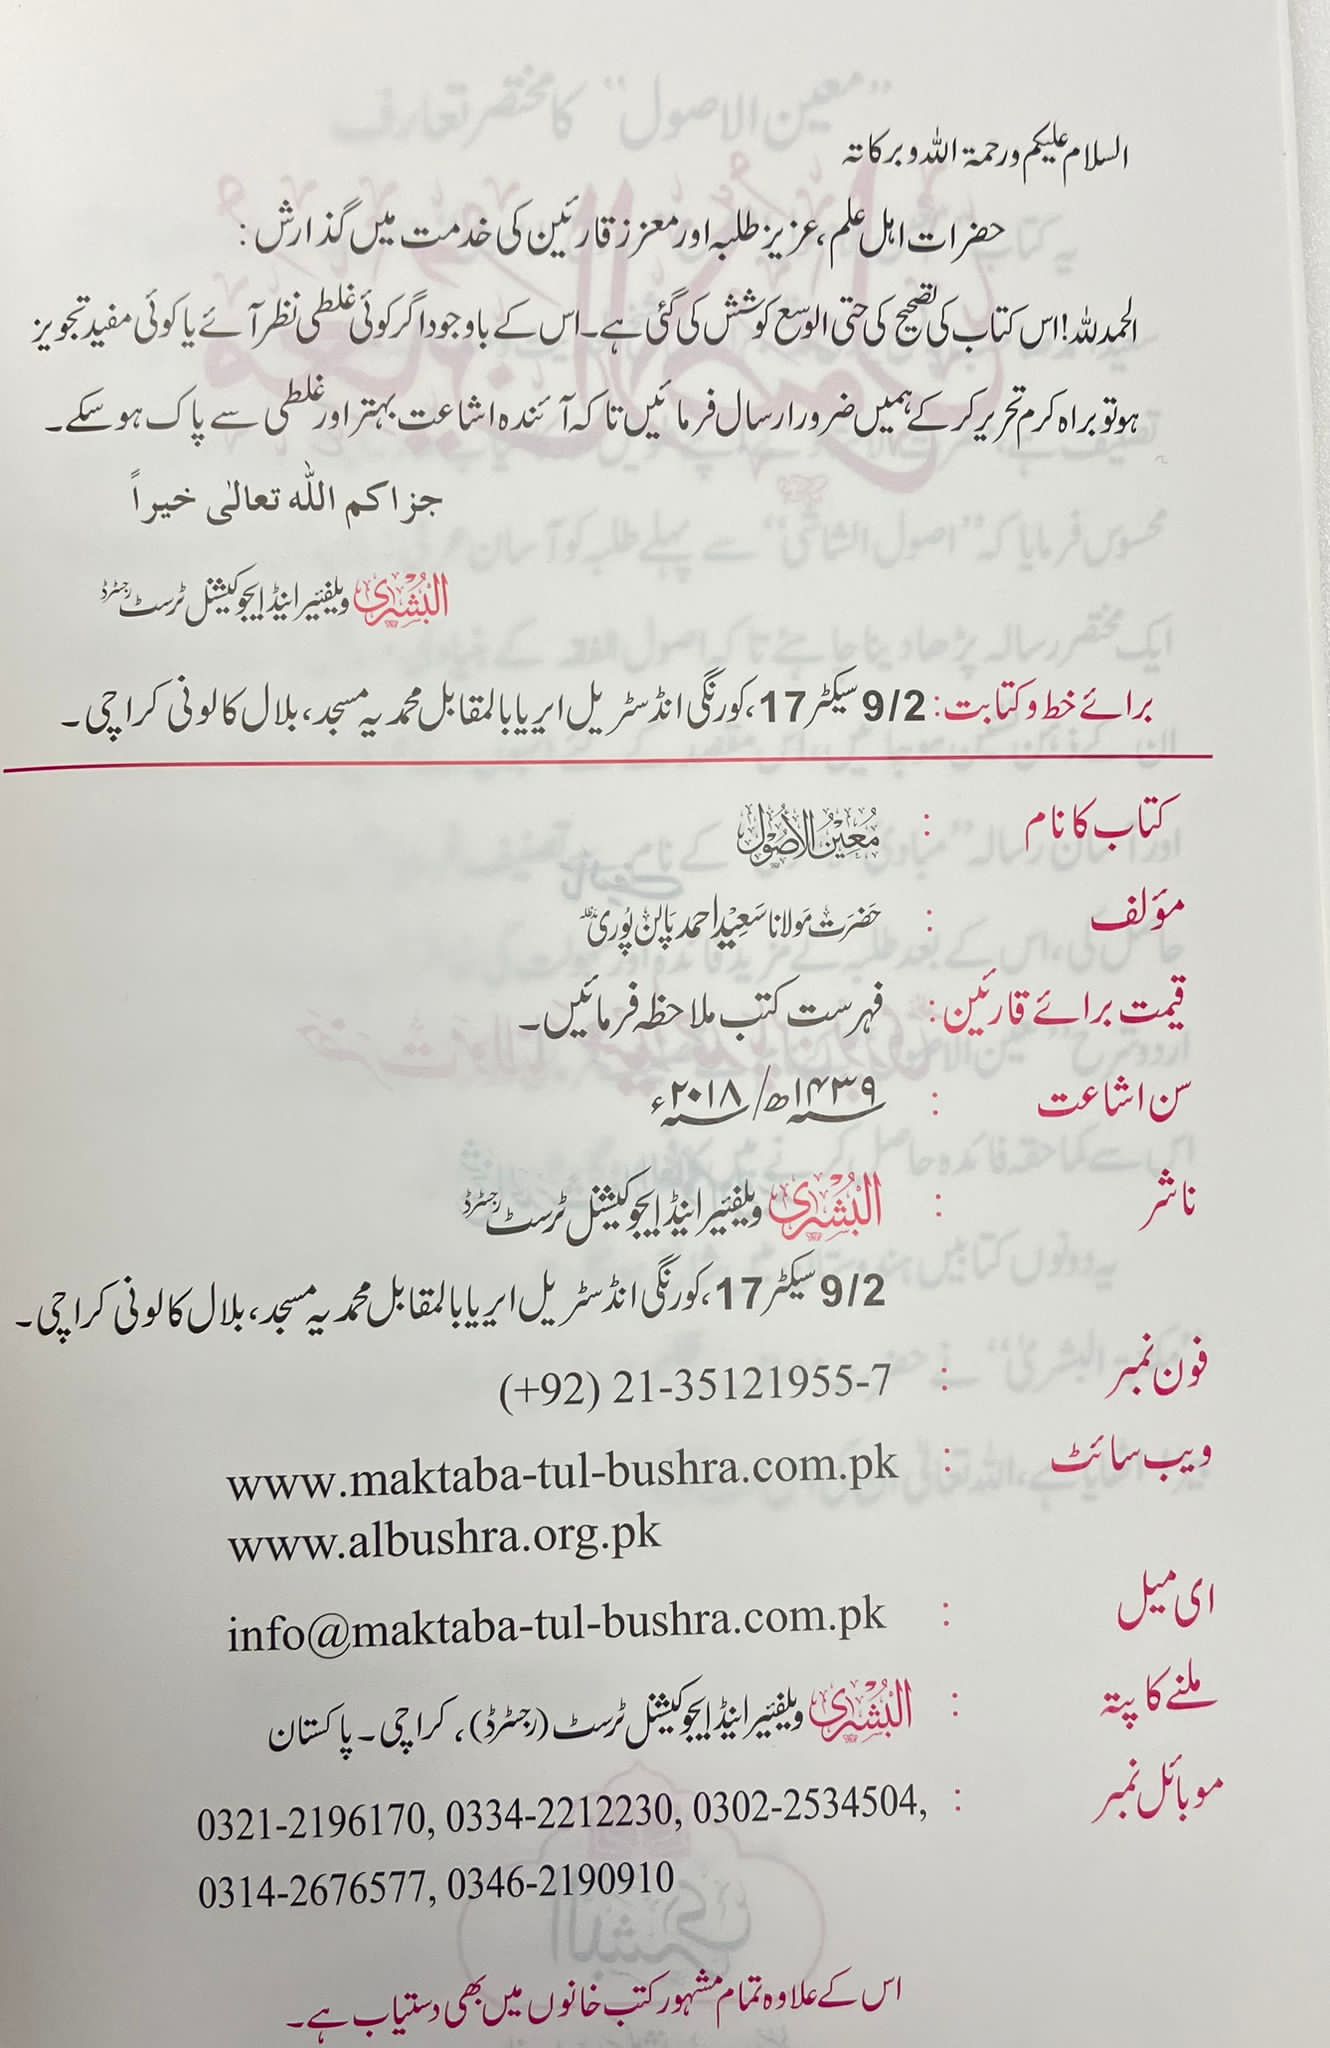 السلام علیکم ورحمۃ اللہ وبرکاتہ
حضرات اہل علم، عزیز طلبہ اور معزز قارئین کی خدمت میں گذارش:
الحمدللہ! اس کتاب کی تصحیح کی حتی الوسع کوشش کی گئی ہے۔ اس کے باوجود اگر کوئی غلطی نظر آئے یا کوئی مفید تجویز
ہو تو براہ کرم تحریر کر کے ہمیں ضرور ارسال فرمائیں تاکہ آئندہ اشاعت بہتر اور غلطی سے پاک ہو سکے۔
جزاکم اللہ تعالیٰ خیراً
البُشریٰ ویلفیئر اینڈ ایجوکیشنل ٹرسٹ رجسٹرڈ
برائے خط و کتابت: 9/2 سیکٹر 17، کورنگی انڈسٹریل ایریا بالمقابل محمدیہ مسجد، بلال کالونی کراچی۔
کتاب کا نام : مُعِینُ الأُصُول
مؤلف : حضرت مولانا سعید احمد پالن پوری
قیمت برائے قارئین: فہرست کتب ملاحظہ فرمائیں۔
سن اشاعت : ۱۴۳۹ھ/ ۲۰۱۸ء
ناشر : البُشریٰ ویلفیئر اینڈ ایجوکیشنل ٹرسٹ رجسٹرڈ
9/2 سیکٹر 17، کورنگی انڈسٹریل ایریا بالمقابل محمدیہ مسجد، بلال کالونی کراچی۔
فون نمبر : (+92) 21-35121955-7
ویب سائٹ : www.maktaba-tul-bushra.com.pk
www.albushra.org.pk
ای میل : info@maktaba-tul-bushra.com.pk
ملنے کا پتہ : البُشریٰ ویلفیئر اینڈ ایجوکیشنل ٹرسٹ (رجسٹرڈ)، کراچی۔ پاکستان
موبائل نمبر : 0321-2196170, 0334-2212230, 0302-2534504,
0314-2676577, 0346-2190910
اس کے علاوہ تمام مشہور کتب خانوں میں بھی دستیاب ہے۔